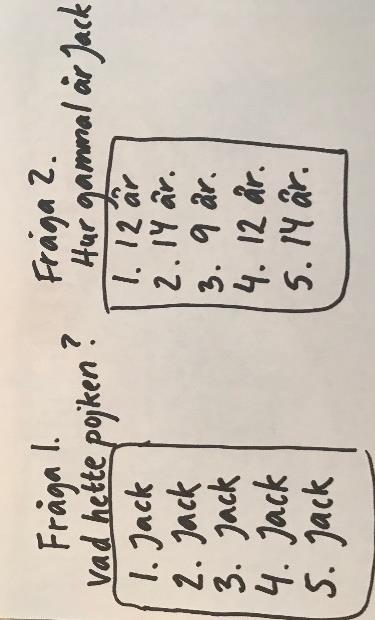 Fråga 1.
Vad hette pojken?
1. Jack
2. Jack
3. Jack
4. Jack
5. Jack
Fråga 2.
Hur gammal är Jack
1. 12 år
2. 14 år.
3. 9 år.
4. 12 år.
5. 14 år.